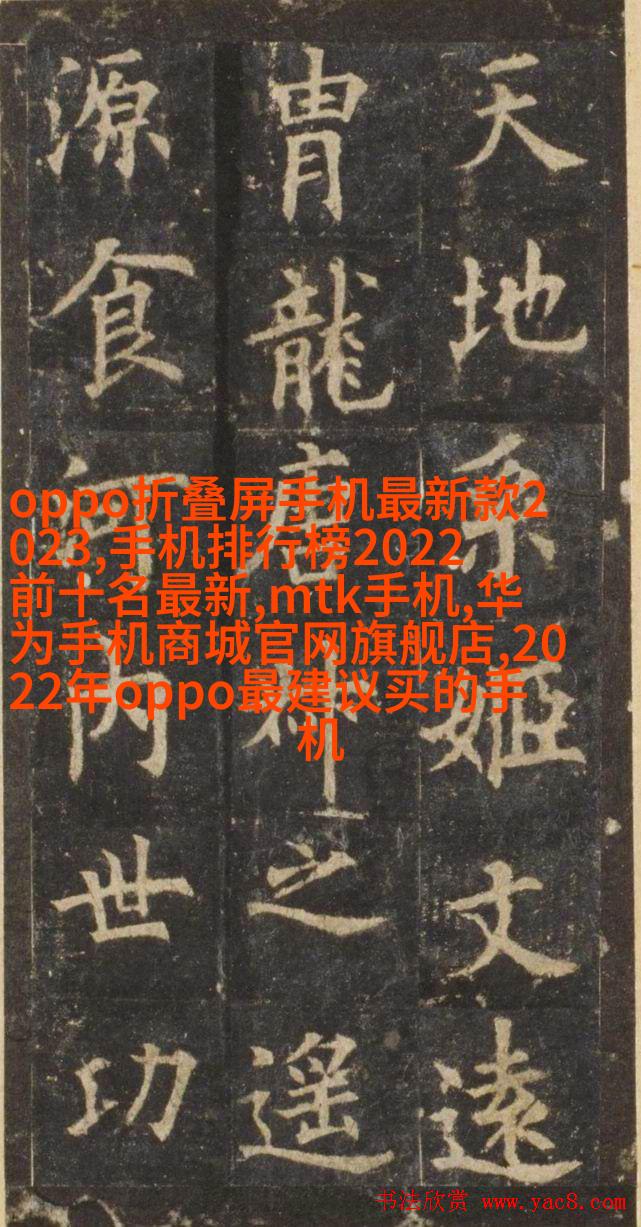 天地系姬文遠
胄龍唐之遥
源食河内世功
oppo折叠屏手机最新款2
023,手机排行榜2022
前十名最新,mtk手机,华
为手机商城官网旗舰店,20
22年oppo最建议买的手
机
书法欣赏 www.yac8.com